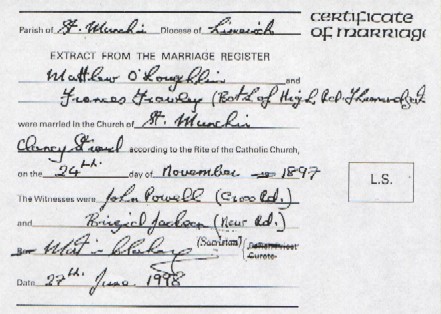 certificate
of marriage
Parish of St. Munchin Diocese of Limerick
EXTRACT FROM THE MARRIAGE REGISTER
Matthew O'Loughlin and
Frances Frawley (Both of High Rd. Thomondgate
were married in the Church of St. Munchin
Clancy Strand according to the Rite of the Catholic Church,
on the 24th. day of November 1897
The Witnesses were John Powell (Cross Rd.)
and Brigid Jackson (New Rd.)
(Sacristan)
Curate.
Date 27th. June 1998
L.S.